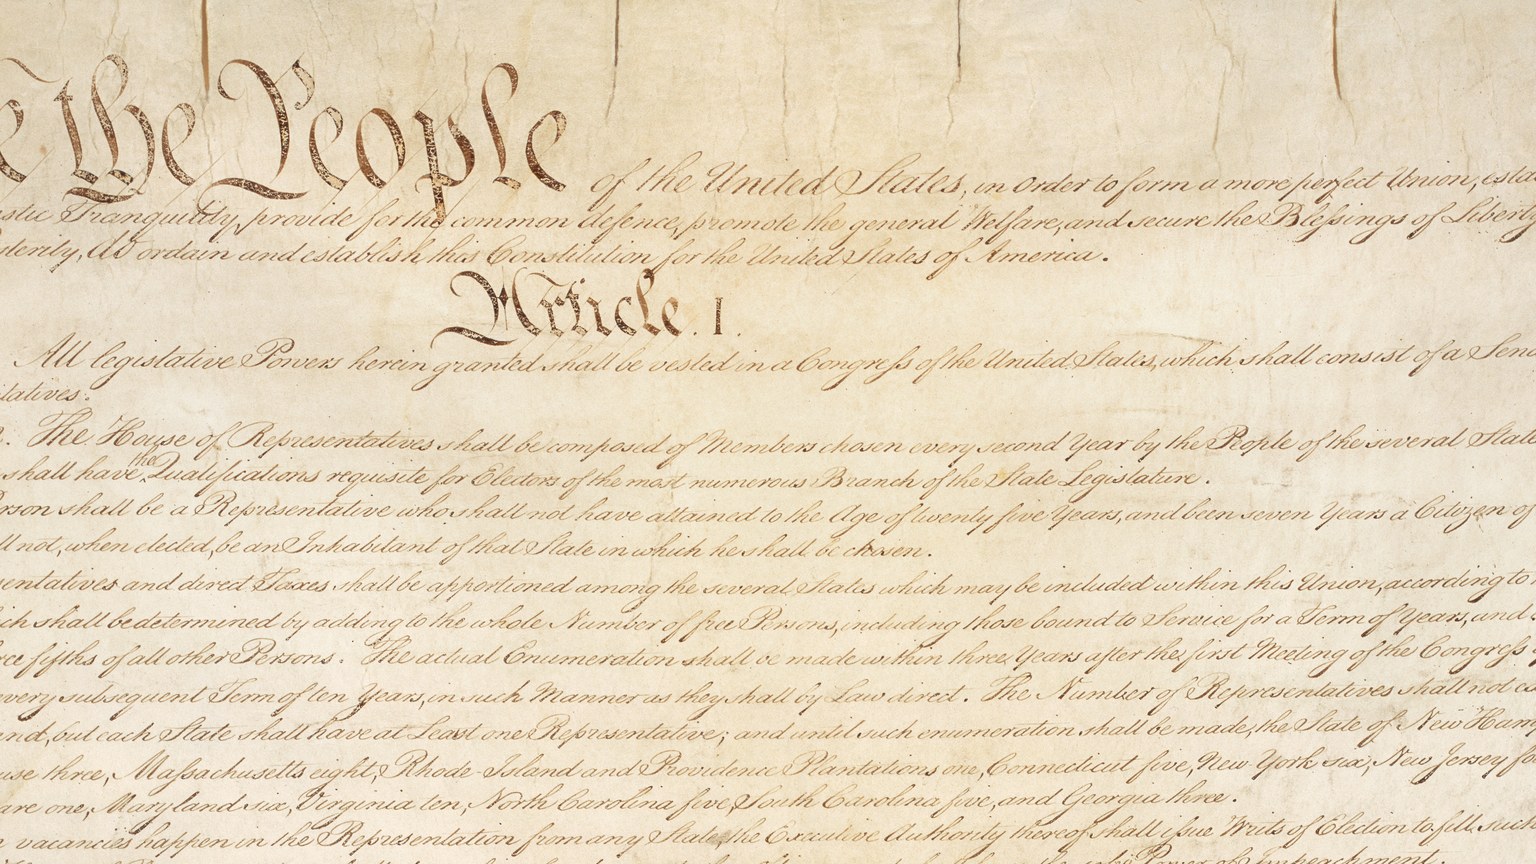 e the People of the United States, in Order to form a more perfect Union, esta
estic Tranquility, provide for the common defence, promote the general Welfare, and secure the Blessings of Liberty
sterity, do ordain and establish this Constitution for the United States of America.
Article. I.
All legislative Powers herein granted shall be vested in a Congress of the United States, which shall consist of a Sena
tatives.
. The House of Representatives shall be composed of Members chosen every second Year by the People of the several State
shall have the Qualifications requisite for Electors of the most numerous Branch of the State Legislature.
erson shall be a Representative who shall not have attained to the Age of twenty five Years, and been seven Years a Citizen of
ll not, when elected, be an Inhabitant of that State in which he shall be chosen.
sentatives and direct Taxes shall be apportioned among the several States which may be included within this Union, according to
ich shall be determined by adding to the whole Number of free Persons, including those bound to Service for a Term of Years, and
ree fifths of all other Persons. The actual Enumeration shall be made within three Years after the first Meeting of the Congress
every subsequent Term of ten Years, in such Manner as they shall by Law direct. The Number of Representatives shall not ex
and, but each State shall have at Least one Representative; and until such enumeration shall be made, the State of New Hamp
use three, Massachusetts eight, Rhode-Island and Providence Plantations one, Connecticut five, New-York six, New Jersey fo
are one, Maryland six, Virginia ten, North Carolina five, South Carolina five, and Georgia three.
vacancies happen in the Representation from any State, the Executive Authority thereof shall issue Writs of Election to fill such
Power of Impeachment.